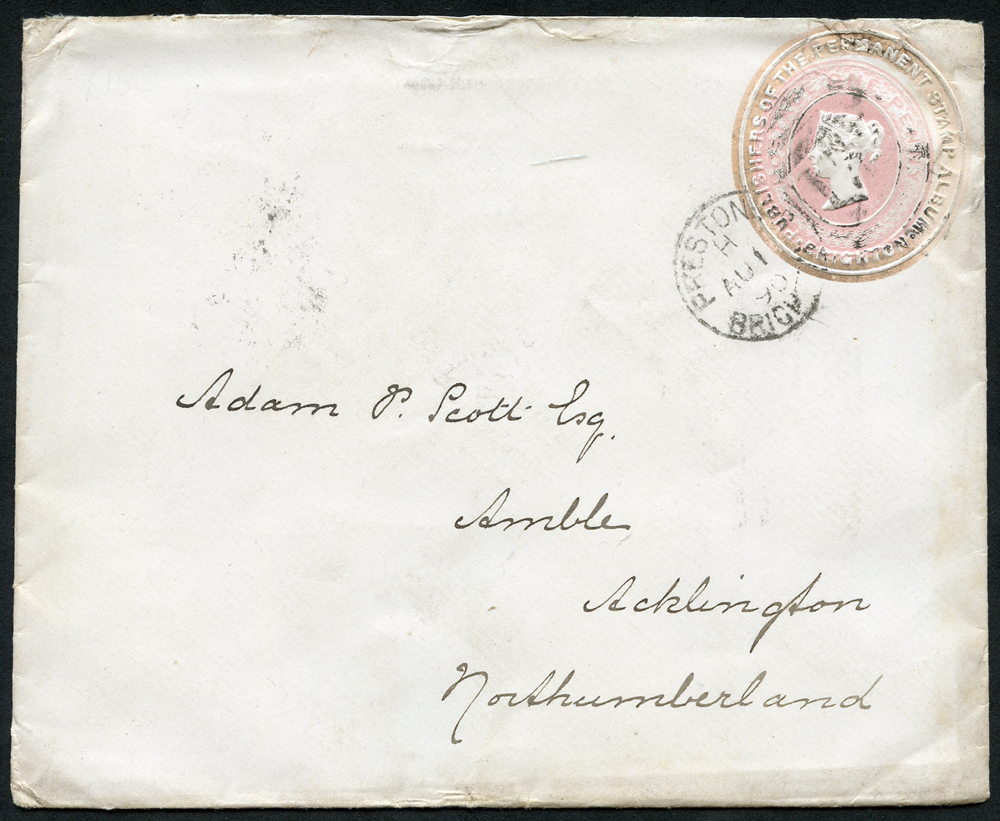 PUBLISHERS OF THE PERMANENT STAMP ALBUM
BRIGHTON
PRESTON
H
AU 1
90
BRIGH
Adam P. Scott Esq.
Amble
Acklington
Northumberland